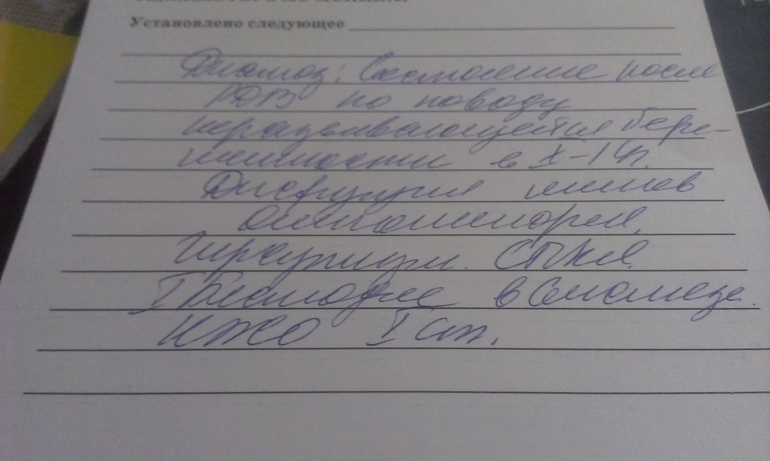 Установлено следующее
Диагноз: Состояние после
РДВ по поводу
неразвивающейся бере-
менности в X-14г.
Дисфункция яичников
олигоменорея.
Гирсутизм. СПКЯ.
I бесплодие в анамнезе.
НЖО I ст.